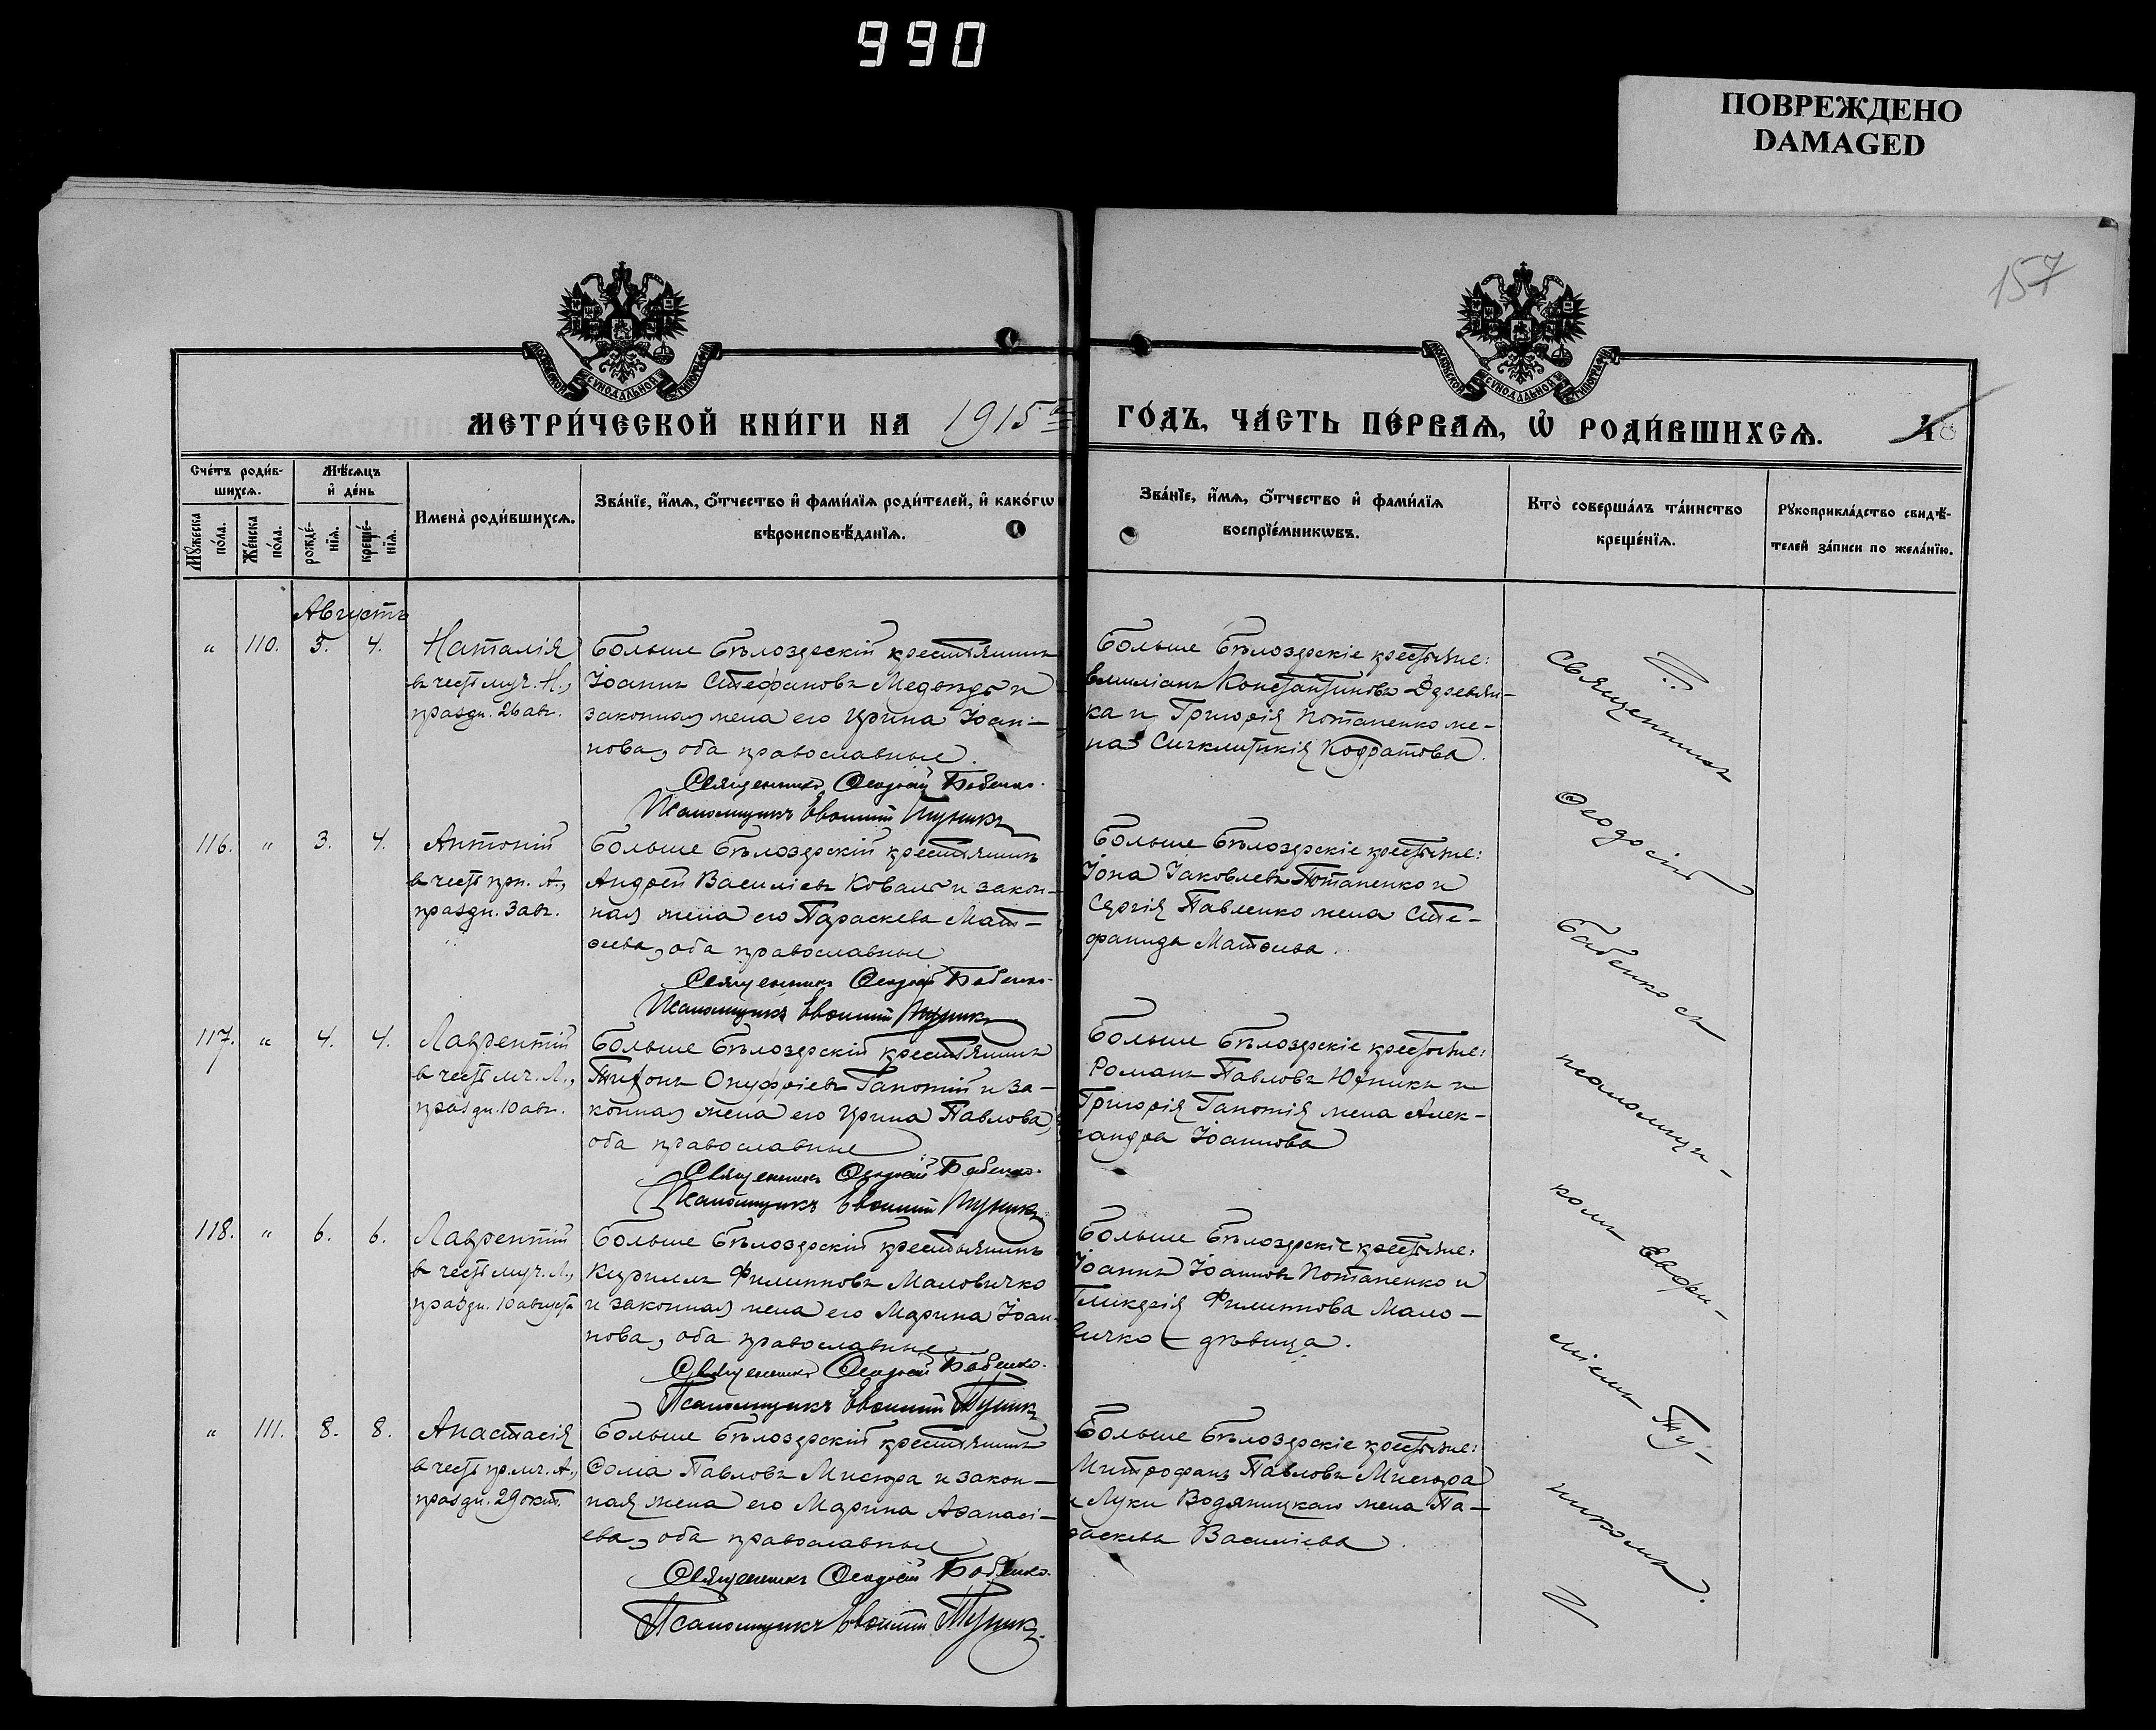 990
ПОВРЕЖДЕНО
DAMAGED
157
МОСКОВСКОЙ СѴНОДАЛЬНОЙ ТИПОГРАФІИ
МОСКОВСКОЙ СѴНОДАЛЬНОЙ ТИПОГРАФІИ
МЕТРИ́ЧЕСКОЙ КНИ́ГИ НА 1915
ГО́ДЪ, ЧА́СТЬ ПЕ́РВАѦ, Ѡ҆ РОДИ́ВШИХСѦ.
Сче́тъ роди́в-
шихсѧ.
Мꙋ́жеска
по́ла.
Же́нска
по́ла.
Мѣ́сѧцъ
и҆ де́нь
рожде́-
нїѧ.
креще́-
нїѧ.
Имена̀ роди́вшихсѧ.
Зва́нїе, и҆́мѧ, ѻ҆́тчество и҆ фами́лїѧ роди́телей, и҆ како́гѡ
вѣроисповѣ́данїѧ.
Зва́нїе, и҆́мѧ, ѻ҆́тчество и҆ фами́лїѧ
воспрїе́мникѡвъ.
Кто̀ соверша́лъ та́инство
креще́нїѧ.
Рꙋкоприкла́дство свидѣ́-
телей за́писи по жела́нїю.
Августъ
" 110. 3. 4.
Наталія
въ честь муч. Н.,
праздн. 26 авг.
Больше Бѣлозерскій крестьянинъ
Іоаннъ Стефановъ Медвѣдь и
законная жена его Ирина Іоан-
нова, оба православные.
Священникъ Ѳеодосій Бабенко.
Псаломщикъ Евѳимій Пуникъ
Больше Бѣлозерскіе крестьяне:
Емиліанъ Константиновъ Деревян-
ка и Григорія Потапенко же-
на Синклитикія Кодратова.
116. " 3. 4.
Антоній
въ честь прп. А.,
праздн. 3 авг.
Больше Бѣлозерскій крестьянинъ
Андрей Василіевъ Коваль и закон-
ная жена его Параскева Мат-
ѳеева, оба православные
Священникъ Ѳеодосій Бабенко.
Псаломщикъ Евѳимій Пуникъ
Больше Бѣлозерскіе крестьяне:
Іона Іаковлевъ Потапенко и
Сергія Павленко жена Сте-
фанида Матѳеева.
117. " 4. 4.
Лаврентій
въ честь мч. Л.,
праздн. 10 авг.
Больше Бѣлозерскій крестьянинъ
Тихонъ Онуфріевъ Гапотій и за-
конная жена его Ирина Павлова,
оба православные
Священникъ Ѳеодосій Бабенко.
Псаломщикъ Евѳимій Пуникъ
Больше Бѣлозерскіе крестьяне:
Романъ Павловъ и
Григорія Гапотія жена Алек-
сандра Іоаннова
118. " 6. 6.
Лаврентій
въ честь муч. Л.,
праздн. 10 августа
Больше Бѣлозерскій крестьянинъ
Кириллъ Филипповъ Маловичко
и законная жена его Марина Іоан-
нова, оба православные
Священникъ Ѳеодосій Бабенко.
Псаломщикъ Евѳимій Пуникъ
Больше Бѣлозерскіе крестьяне:
Іоаннъ Іоанновъ Потапенко и
Гликерія Филиппова Мало-
вичко - дѣвица.
" 111. 8. 8.
Анастасія
въ честь пр. мч. А.,
праздн. 29 окт.
Больше Бѣлозерскій крестьянинъ
Ѳома Павловъ Мисюра и закон-
ная жена его Марина Аѳанасі-
ева, оба православные
Священникъ Ѳеодосій Бабенко.
Псаломщикъ Евѳимій Пуникъ.
Больше Бѣлозерскіе крестьяне:
Митрофанъ Павловъ Мисюра
и Луки Водяницкаго жена Па-
раскева Василіева.
Священникъ
Ѳеодосій
Бабенко съ
псаломщи-
комъ Евфи-
міемъ Пу-
никомъ.